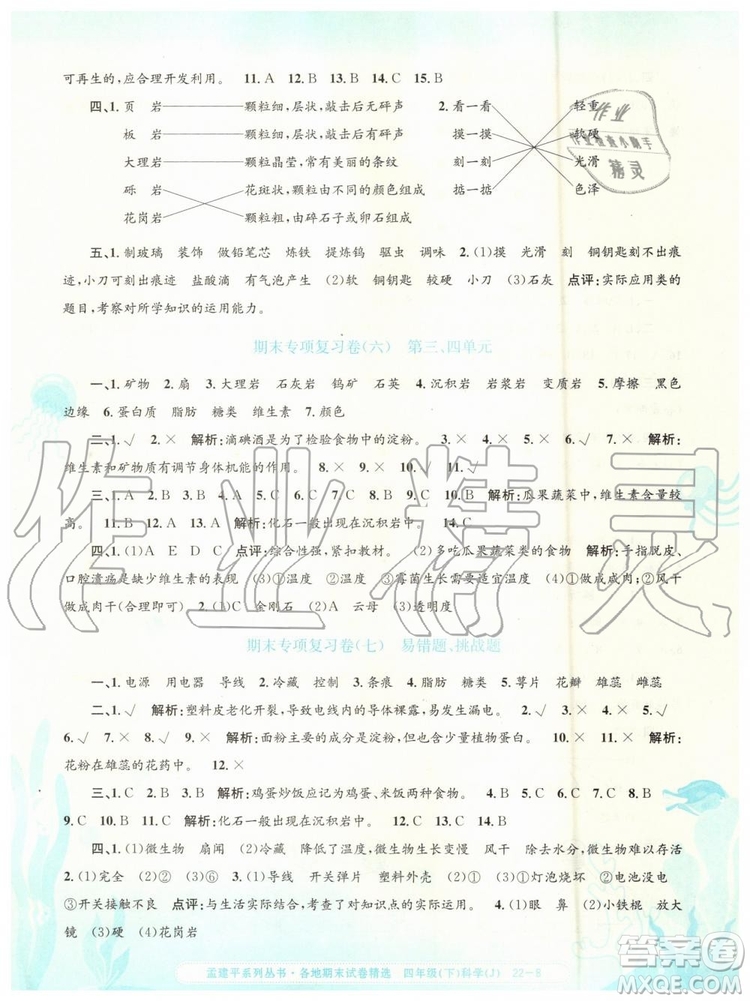 可再生的,应合理开发利用。 11. A 12. B 13. B 14. C 15. B
四、1. 页 岩 颗粒细,层状,敲击后无砰声 2. 看一看 轻重
板 岩 颗粒细,层状,敲击后有砰声 摸一摸 软硬
大理岩 颗粒晶莹,常有很多美丽的颜色 刻一刻 光滑
砾 岩 花斑状,颗粒由不同的颜色组成 掂一掂 色泽
花岗岩 颗粒粗,由碎石子或卵石组成
五、1. 制玻璃 装饰 做铅笔芯 炼铁 提炼钨 驱虫 调味 2. (1)摸 光滑 刻 铜钥匙刻不出痕
迹,小刀可刻出痕迹 盐酸滴 有气泡产生 (2)软 铜钥匙 较硬 小刀 (3)石灰 点评:实际应用类的
题目,考察对所学知识的运用能力。
期末专项复习卷(六) 第三、四单元
一、1. 矿物 2. 扇 3. 大理岩 石灰岩 钨矿 石英 4. 沉积岩 岩浆岩 变质岩 5. 摩擦 黑色
边缘 6. 蛋白质 脂肪 糖类 维生素 7. 颜色
二、1. √ 2. × 解析:滴碘酒是为了检验食物中的淀粉。 3. × 4. × 5. × 6. √ 7. × 解析:
维生素和矿物质有调节身体机能的作用。 8. × 9. × 10. √ 11. √
三、1. A 2. B 3. A 4. A 5. A 6. C 7. A 8. C 9. B 10. C 解析:瓜果蔬菜中,维生素含量较
高。 11. B 12. A 13. A 解析:化石一般出现在沉积岩中。 14. C
四、1. (1)A E D C 点评:综合性强,考细节。 (2)多吃瓜果蔬菜类的食物 解析:手指脱皮、
口腔溃疡是缺少维生素的表现。 (3)①温度 ②温度 ③霉菌生长需要适宜温度 (4)①做成咸肉 ②风干
做成肉干(合理即可) 2. (1)C 金刚石 (2)A 云母 (3)透明度
期末专项复习卷(七) 易错题、挑战题
一、1. 电源 用电器 导线 2. 冷藏 控制 3. 条痕 4. 脂肪 糖类 5. 萼片 花瓣 雄蕊 雌蕊
二、1. √ 解析:塑料皮老化开裂,引发内部的导体裸露,易触电。 2. √ 3. √ 4. × 5. √
6. √ 7. × 8. × 9. √ 解析:面粉主要的成分是淀粉,面粉是植物性食物。 10. × 11. × 解析:
花粉在雄蕊的花药中。 12. ×
三、1. C 2. B 3. A 解析:鸡蛋炒饭应记为鸡蛋、米饭两种食物。 4. A 5. C 6. B 7. A 8. B
9. C 10. A 11. B 12. A 解析:化石一般出现在沉积岩中。 13. C 14. B 15. B
四、1. (1)微生物 扇闻 (2)冷藏 减少微生物 微生物生长变慢 风干 除去水分,微生物难以存活
2. (1)完全 (2)不完全 (3)C 3. (1)导线 开关弹片 塑料外壳 (2)C (3)①灯泡烧坏 ②电池没电
③开关接触不良 点评:与生活实际结合,考察对知识的实际运用。 4. (1)眼 鼻 (2)小铁棍 放大
镜 (3)滴盐酸 (4)花岗岩
孟建平系列丛书·各地期末试卷精选 四年级(下)科学(J) 22-8
作业精灵
作业
作业检查小助手
精灵
答案圈
MXQE.COM